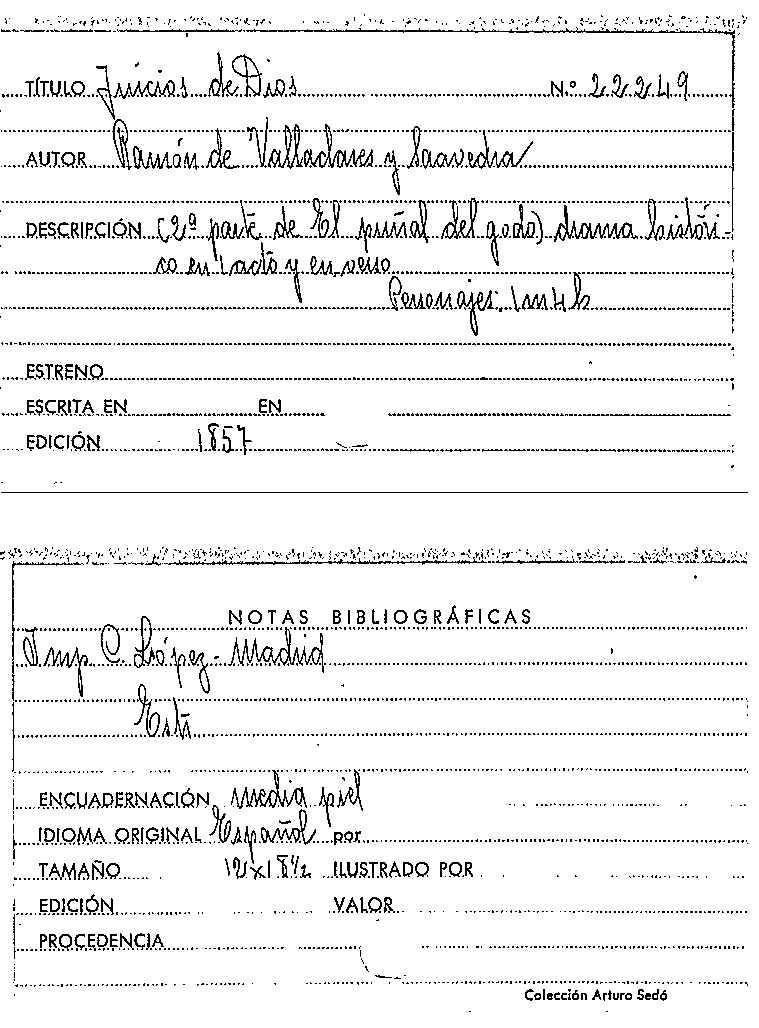 TÍTULO Juicios de Dios N.º 22249
AUTOR Ramón de Valladares y Saavedra
DESCRIPCIÓN (2ª parte de El puñal del godo) drama históri-
co en 1 acto y en verso
Personajes: 1 m 4 h
ESTRENO
ESCRITA EN EN
EDICIÓN 1857
NOTAS BIBLIOGRÁFICAS
Imp C. López - Madrid
ENCUADERNACIÓN media piel
IDIOMA ORIGINAL Español por
TAMAÑO 12x18½ ILUSTRADO POR
EDICIÓN VALOR
PROCEDENCIA
Colección Arturo Sedó